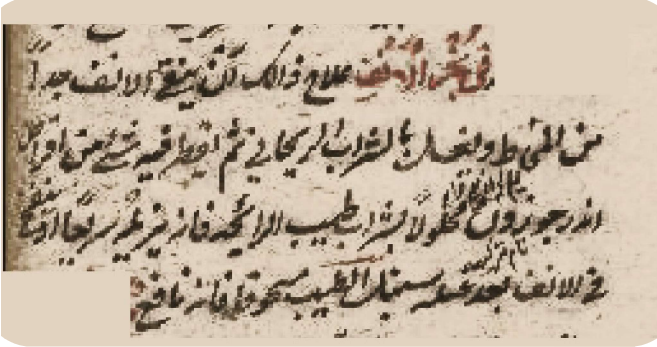 في بخر الأنف علاج ذالك أن ينقى الانف جداً
من المخاط ويغسل بالشراب الريحاني ثم اقطر فيه شئ من اقراص
محلولاً بشراب طيب الرائحه فانه سريعا او ينفخ
في الانف بعد غسله سنبل الطيب مسحوقا فانه نافع